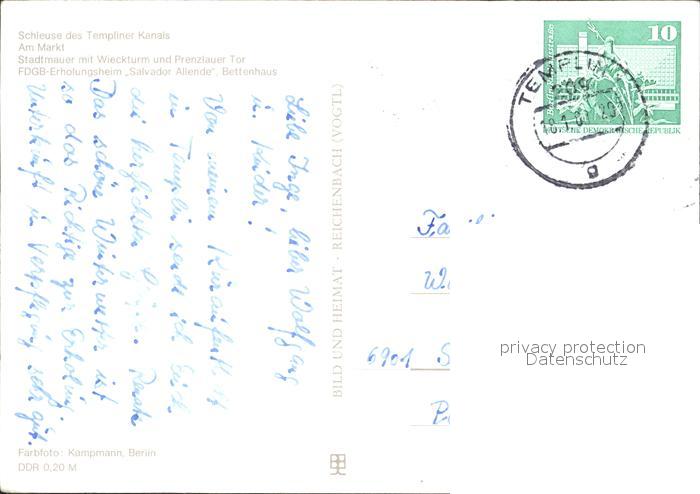 Schleuse des Templiner Kanals
Am Markt
Stadtmauer mit Wieckturm und Prenzlauer Tor
FDGB-Erholungsheim „Salvador Allende", Bettenhaus
Liebe Inge, lieber Wolfgang
u. Kinder!
Von meinem Kuraufenthalt
in Templin sende ich Euch
die herzlichsten Grüße.
Das schöne Winterwetter ist
so das Richtige zur Erholung
Unterkunft u. Verpflegung sehr gut.
Farbfoto: Kampmann, Berlin
DDR 0,20 M
BILD UND HEIMAT · REICHENBACH (VOGTL)
10
DEUTSCHE DEMOKRATISCHE REPUBLIK
TEMPLIN
Fa
W
6901 S
privacy protection
Datenschutz